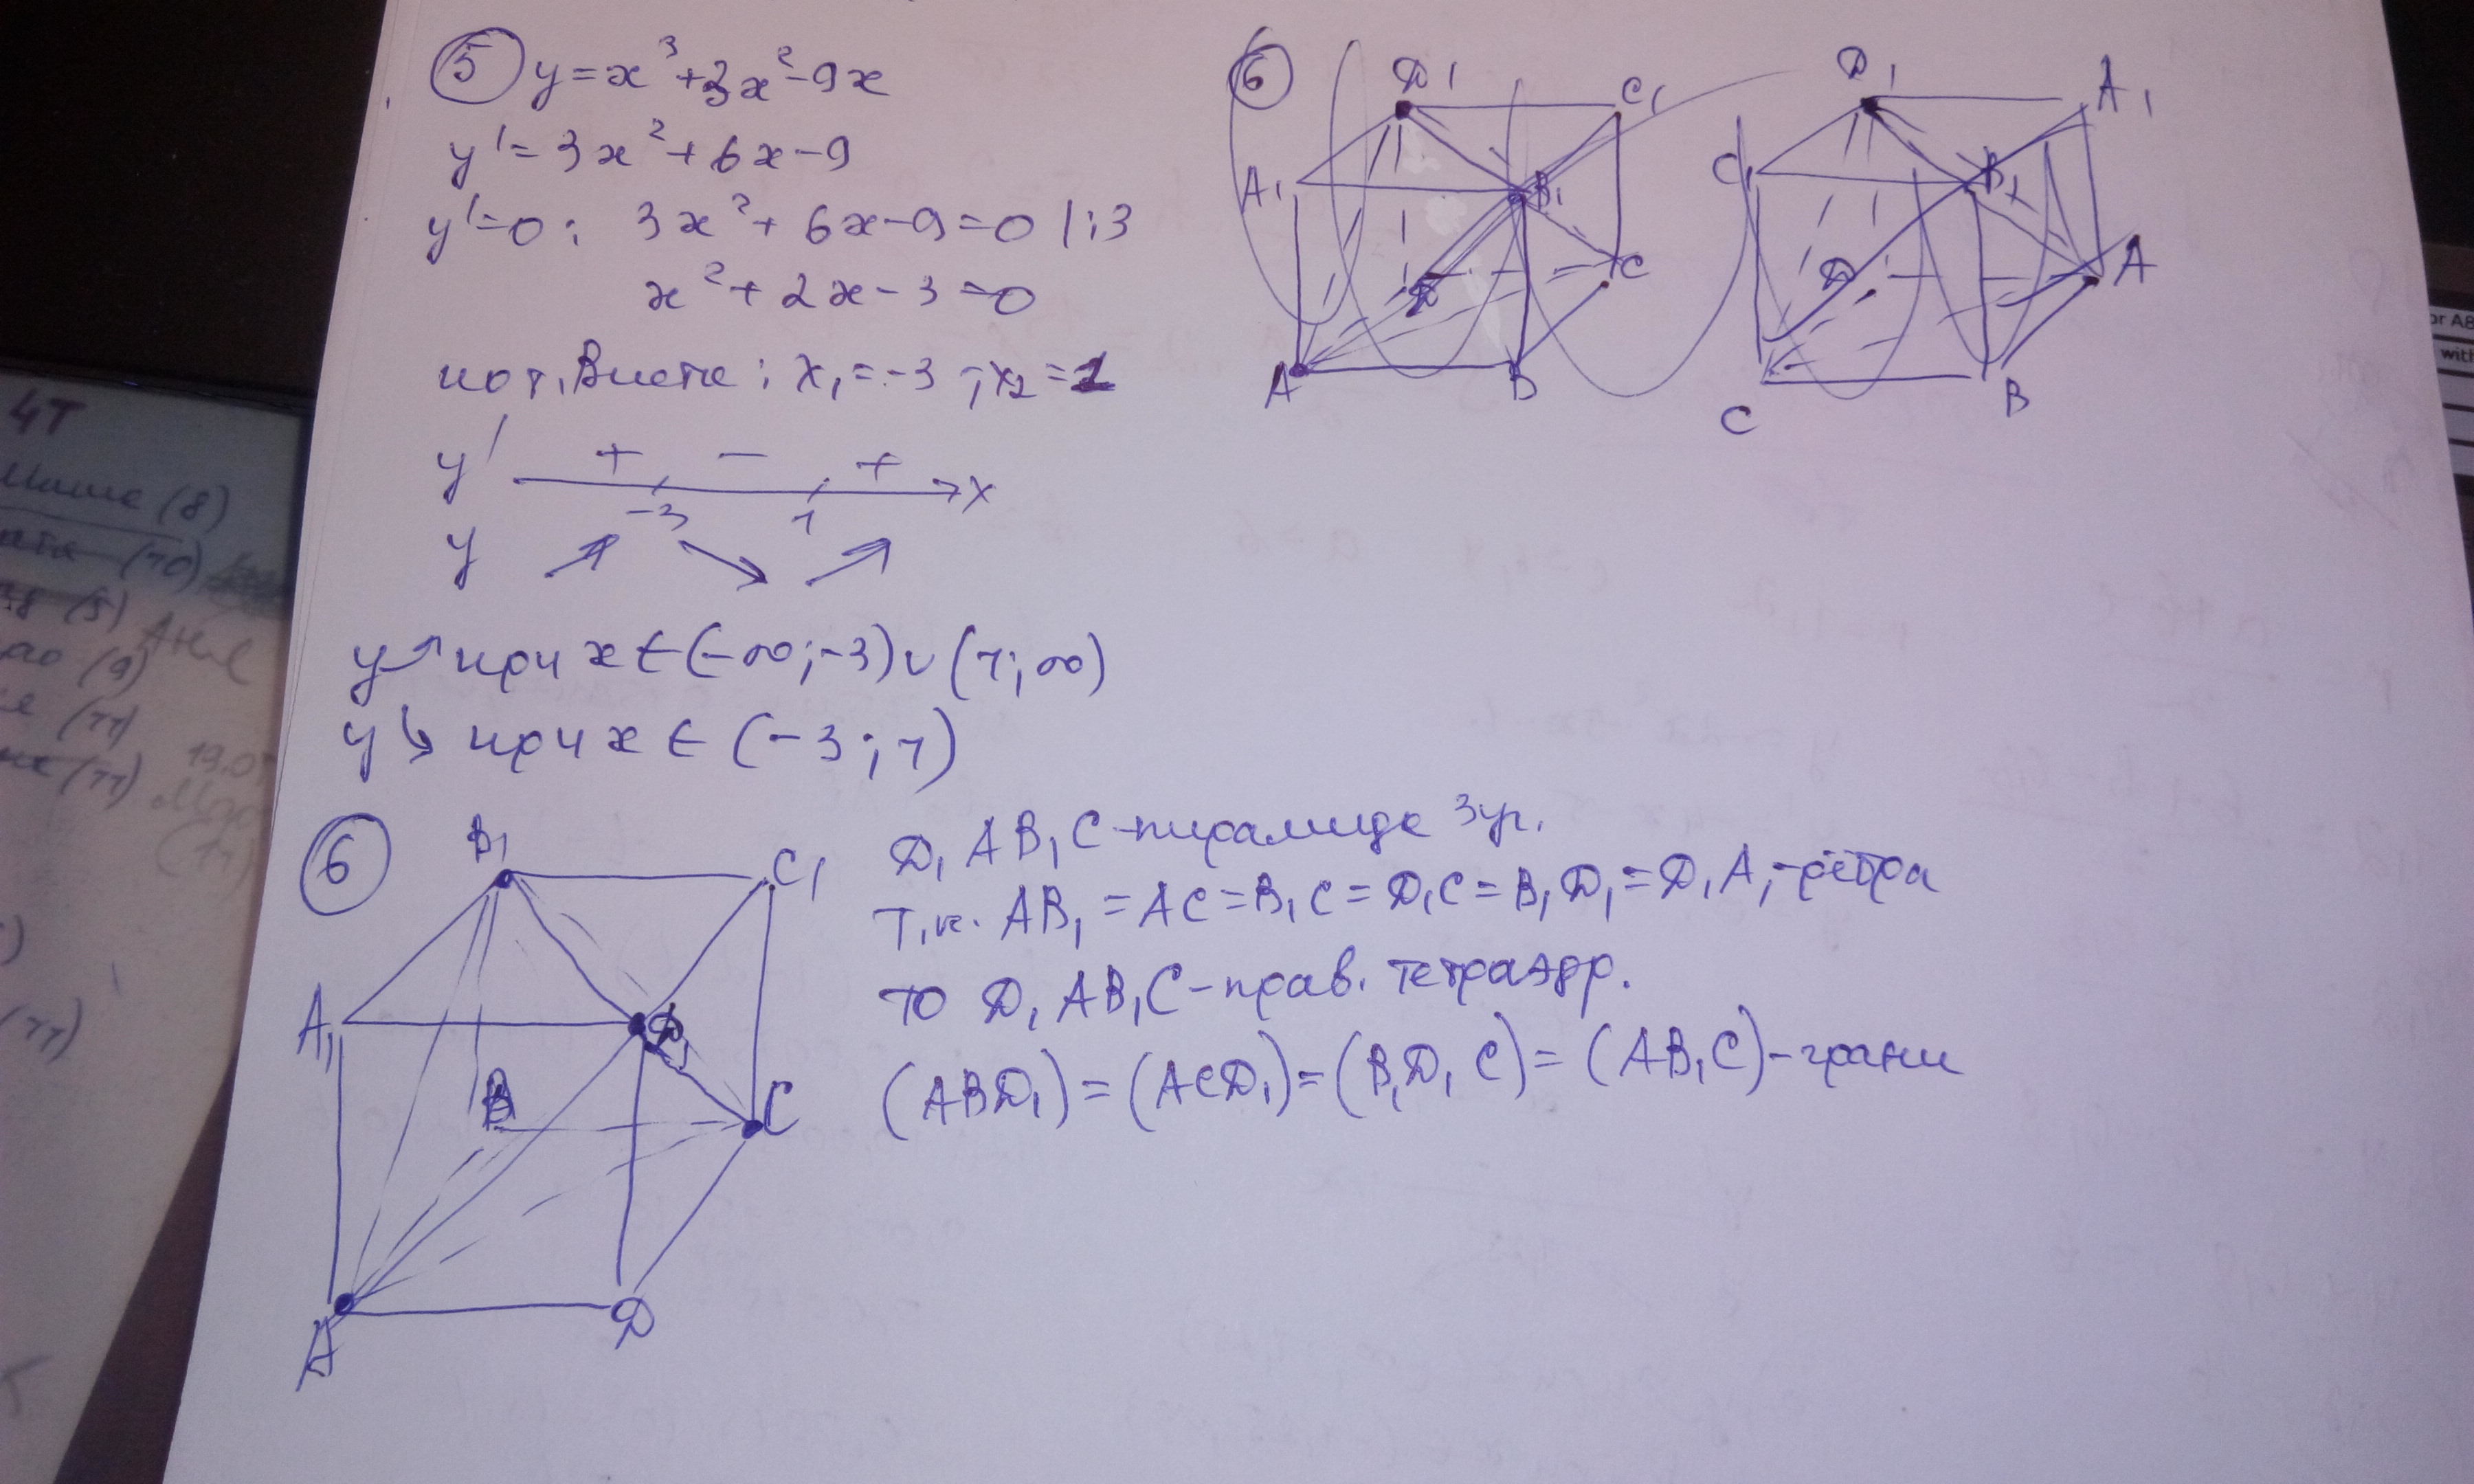 ⑤ y=x³+3x²-9x
y'=3x²+6x-9
y'=0: 3x²+6x-9=0 |:3
x²+2x-3=0
по т. Виета: x₁=-3; x₂=1
y' + - + x
-3 1
y
y↗ при x∈(-∞;-3)∪(1;∞)
y↘ при x∈(-3;1)
⑥ D₁ C₁ A₁ B₁ D C A B
D₁ A₁ C₁ B₁ D A C B
⑥ B₁ C₁ A₁ D₁ B C A D
D₁AB₁C-пирамида 3уг.
Т.к. AB₁=AC=B₁C=D₁C=B₁D₁=D₁A,-рёбра
то D₁AB₁C-прав. тетраэдр.
(ABD₁)=(ACD₁)=(B₁D₁C)=(AB₁C)-грани
4T
(8)
(10)
(5)
(9)
(11)
19.0
(11)
(11)
(11)
or AB
with